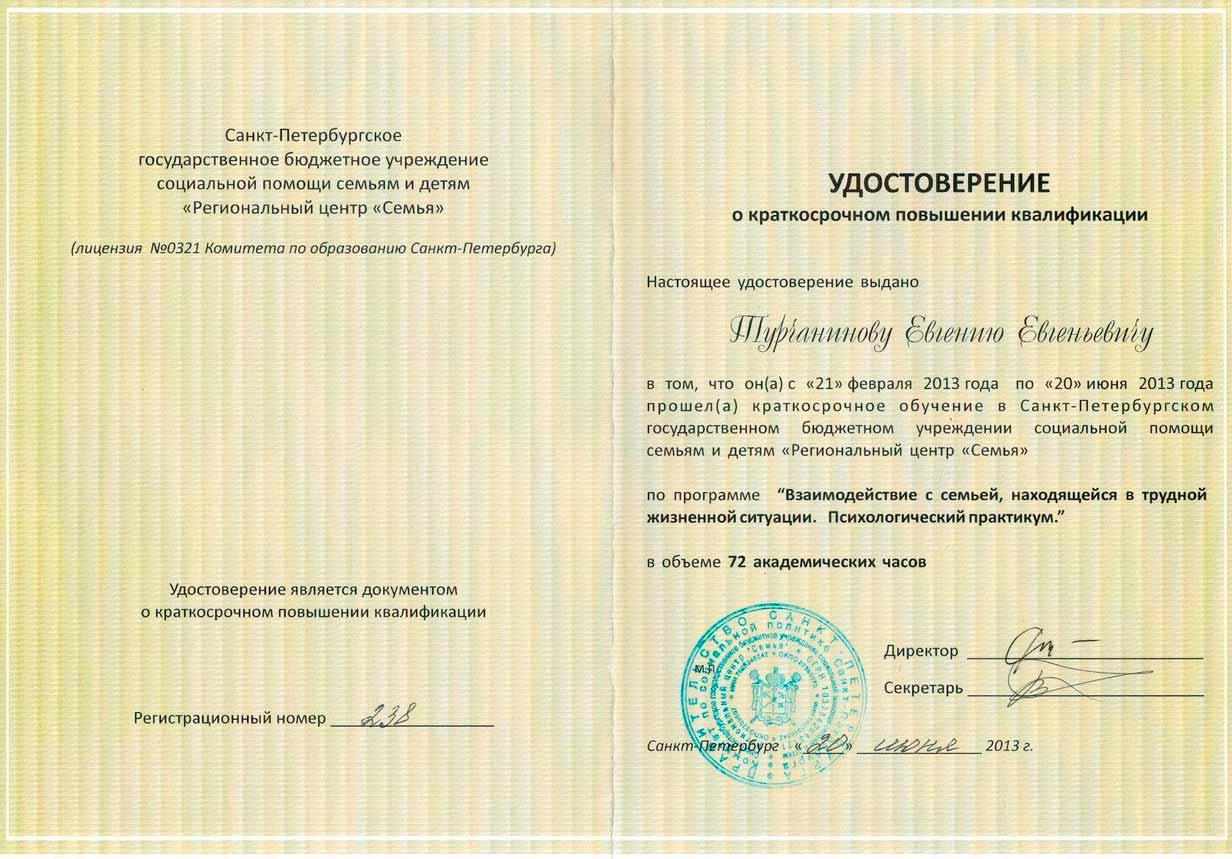 Санкт-Петербургское
государственное бюджетное учреждение
социальной помощи семьям и детям
«Региональный центр «Семья»
(лицензия №0321 Комитета по образованию Санкт-Петербурга)
Удостоверение является документом
о краткосрочном повышении квалификации
Регистрационный номер 238
УДОСТОВЕРЕНИЕ
о краткосрочном повышении квалификации
Настоящее удостоверение выдано
Турчанинову Евгению Евгеньевичу
в том, что он(а) с «21» февраля 2013 года по «20» июня 2013 года
прошел(а) краткосрочное обучение в Санкт-Петербургском
государственном бюджетном учреждении социальной помощи
семьям и детям «Региональный центр «Семья»
по программе “Взаимодействие с семьей, находящейся в трудной
жизненной ситуации. Психологический практикум.”
в объеме 72 академических часов
М.П.
Директор
Секретарь
Санкт-Петербург «20» июня 2013 г.